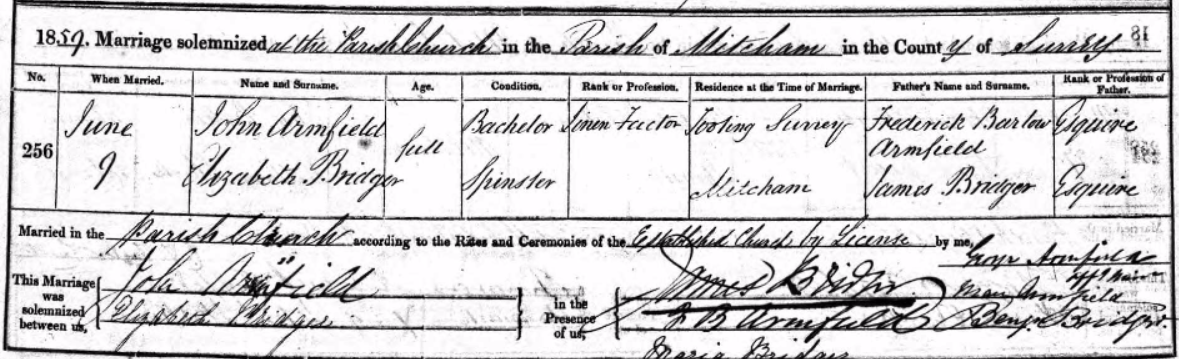 1859. Marriage solemnized at the Parish Church in the Parish of Mitcham in the County of Surrey 18
No. When Married. Name and Surname. Age. Condition. Rank or Profession. Residence at the Time of Marriage. Father's Name and Surname. Rank or Profession of Father.
256 June 9 John Armfield full Bachelor Linen Factor Tooting Surrey Frederick Barlow Armfield Esquire
Elizabeth Bridger Spinster Mitcham James Bridger Esquire
Married in the Parish Church according to the Rites and Ceremonies of the Established Church by License by me, George Armfield
This Marriage was solemnized between us, John Armfield in the Presence of us, James Bridger Mary Armfield
Elizabeth Bridger F B Armfield Benjn Bridger
Maria Bridger